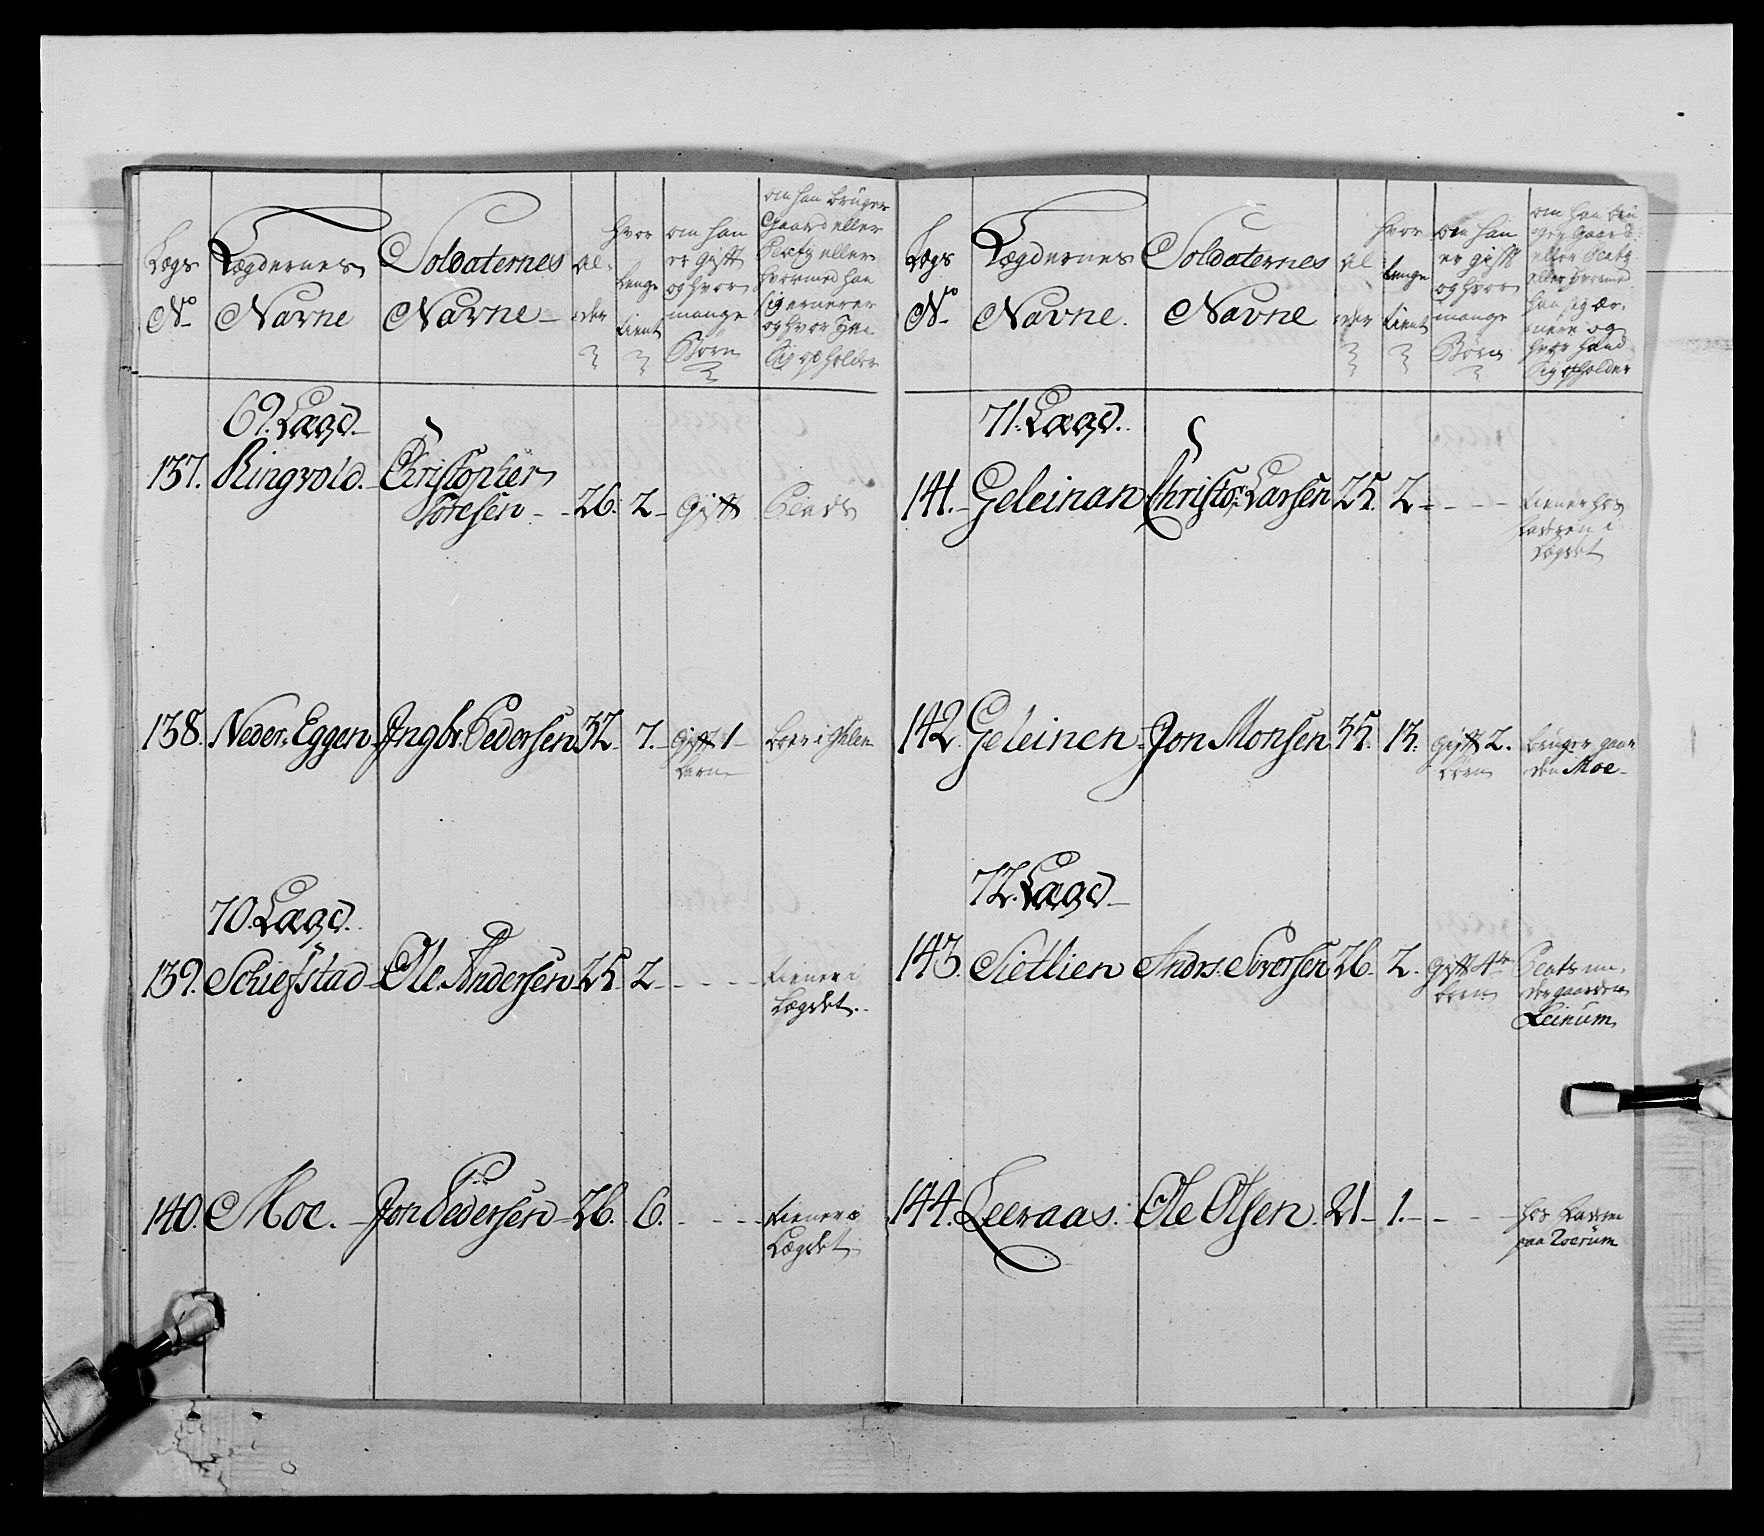 Lægs No
Lægdernes Navne
Soldaternes Navne
Alder
hvor lenge tient
om han er gift og hvor mange Børn
om han bruger Gaard eller Plads eller hvormed han sig ernerer og hvor Han sig opholder
69. Lægd
137. Ringvold. Christopher Toresen 26. 2 Gift Plads
138. Neder-Eggen Ingbr. Pedersen 32 7. Gift 1 barn boer i
70. Lægd.
139. Schiefstad Ole Andersen 25 2 tiener i Lægdet.
140. Moe. Jon Pedersen 26. 6. tiener i Lægdet
Lægs No
Lægdernes Navne.
Soldaternes Navne
Alder
hvor lenge tient
om han er gift og hvor mange Børn
om han bruger Gaard eller Plads eller hvormed han sig ernere og hvor hand sig opholder
71. Lægd.
141. Geleinan Christo: Larsen 25. 2 tiener hos i Lægdet
142. Geleinen Jon Monsen 35. 13. gift 2. børn bruger gaarden Moe
72. Lægd
143. Sietlien Andrs. Siversen 26. 2. Gift 4re børn Plads under gaarden Leinum
144. Leeraas. Ole Olsen 21 1. hos paa